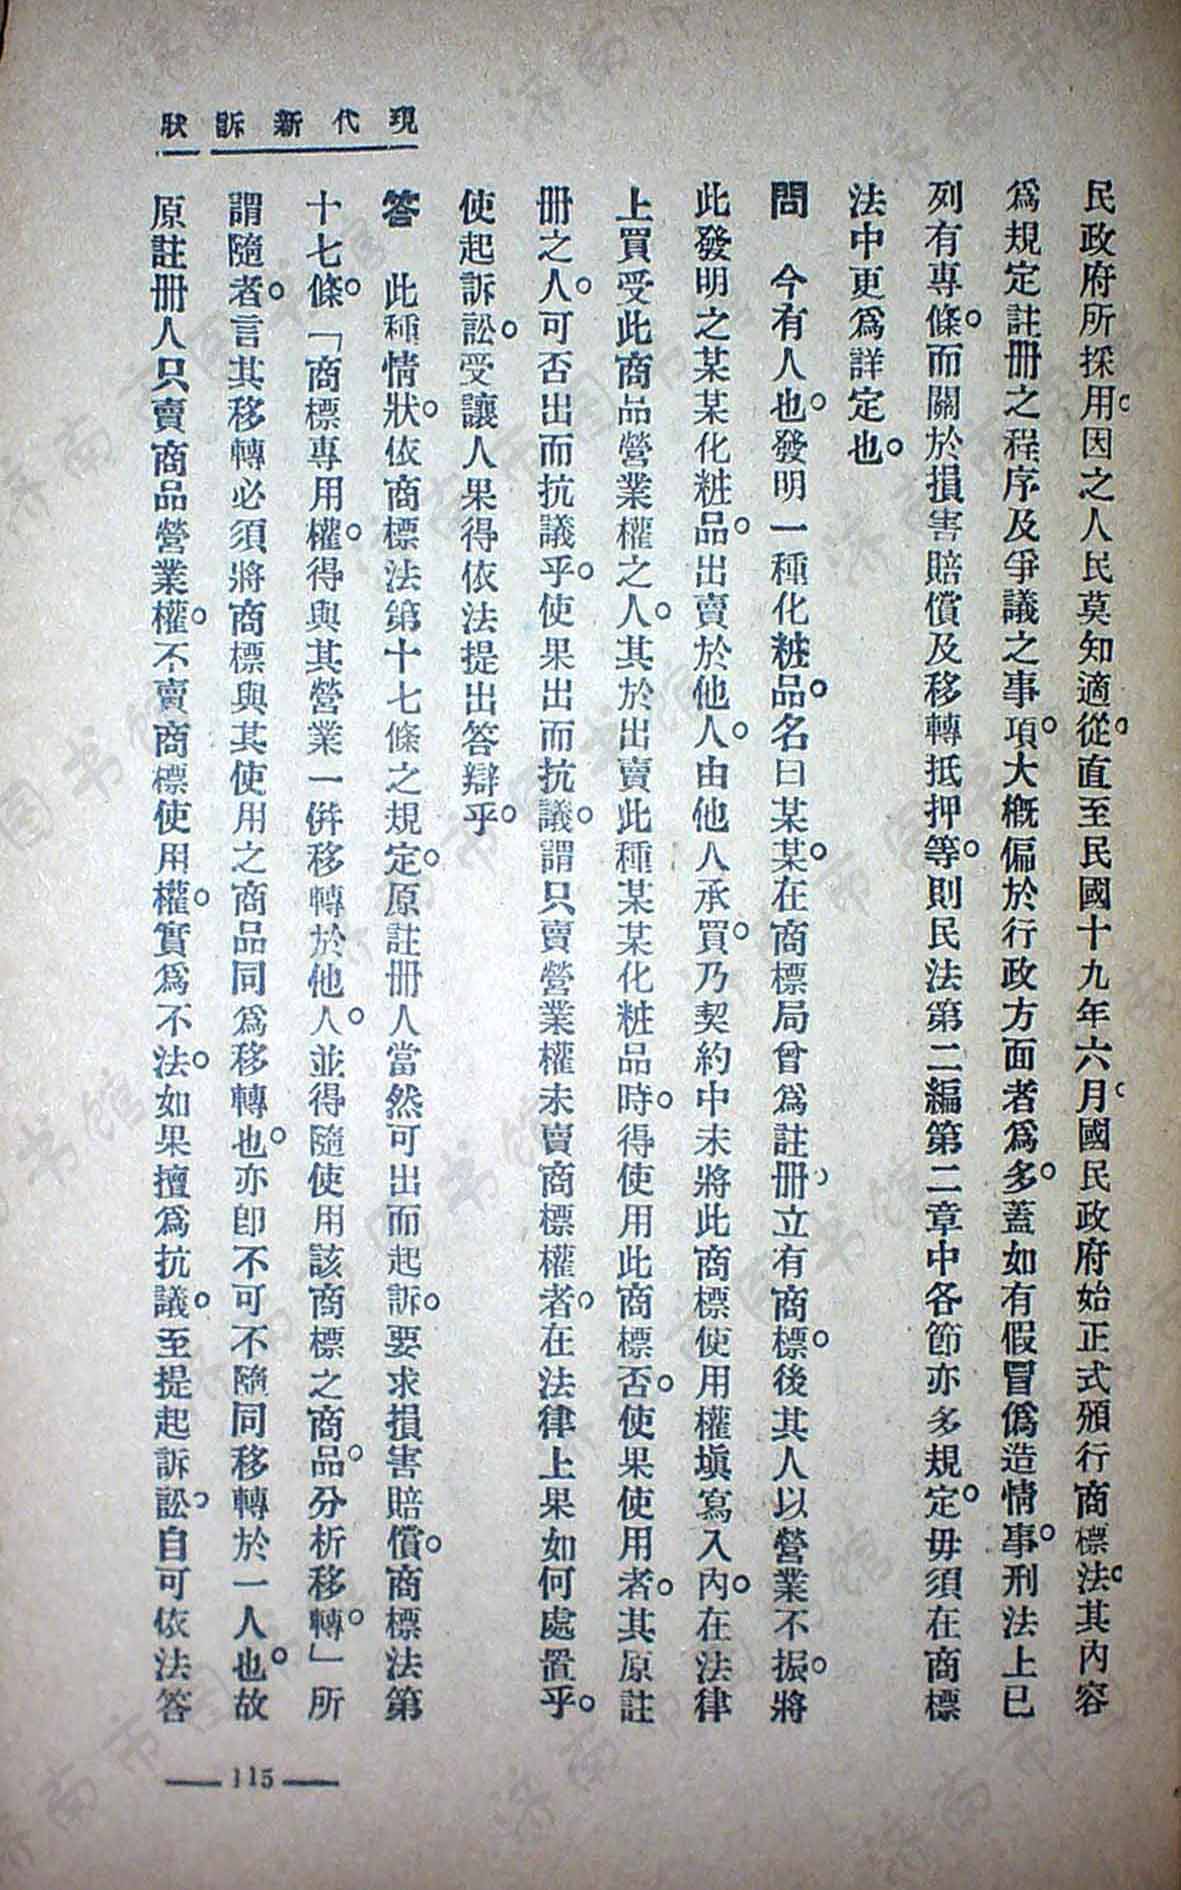 現代新訴狀
民政府所採用。因之人民莫知適從。直至民國十九年六月。國民政府始正式頒行商標法。其內容
爲規定註冊之程序及爭議之事項。大槪偏於行政方面者爲多。蓋如有假冒僞造情事。刑法上已
列有專條。而關於損害賠償及移轉抵押等。則民法第二編第二章中各節亦多規定。毋須在商標
法中更爲詳定也。
問　今有人也。發明一種化粧品。名曰某某。在商標局曾爲註冊。立有商標。後其人以營業不振。將
此發明之某某化粧品。出賣於他人。由他人承買。乃契約中未將此商標使用權塡寫入內。在法律
上買受此商品營業權之人。其於出賣此種某某化粧品時。得使用此商標否。使果使用者。其原註
冊之人。可否出而抗議乎。使果出而抗議。謂只賣營業權未賣商標權者。在法律上果如何處置乎。
使起訴訟。受讓人果得依法提出答辯乎。
答　此種情狀。依商標法第十七條之規定。原註冊人當然可出而起訴。要求損害賠償。商標法第
十七條。「商標專用權。得與其營業一併移轉於他人。並得隨使用該商標之商品。分析移轉。」所
謂隨者。言其移轉必須將商標與其使用之商品同爲移轉也。亦卽不可不隨同移轉於一人也。故
原註冊人只賣商品營業權。不賣商標使用權。實爲不法。如果擅爲抗議。至提起訴訟。自可依法答
— 115 —